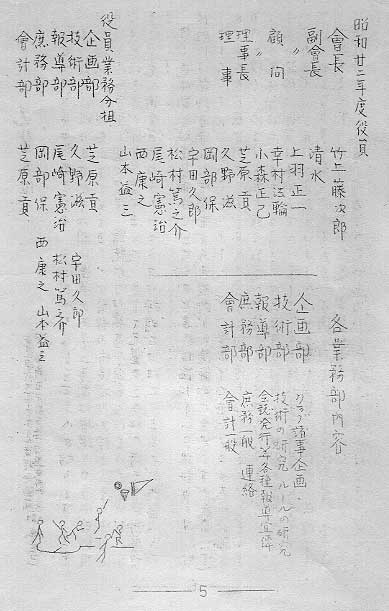 昭和廿二年度役員
會長 竹上藤次郎
副會長 清水
〃 上羽正一
顧問 幸村法輪
〃 小森正己
理事長 芝原貢
理事 久野滋
岡部保
宇田久郎
松村篤之介
尾崎憲治
西康之
山本益三
役員業務分担
企画部 芝原貢 宇田久郎
技術部 久野滋 松村篤之介
報導部 尾崎憲治
庶務部 岡部保 西康之 山本益三
會計部 芝原貢
各業務部内容
企画部 クラブ諸事企画
技術部 技術の研究 ルールの研究
報導部 会誌発行並各種報導宣伝
庶務部 庶務一般 連絡
會計部 會計一般
5